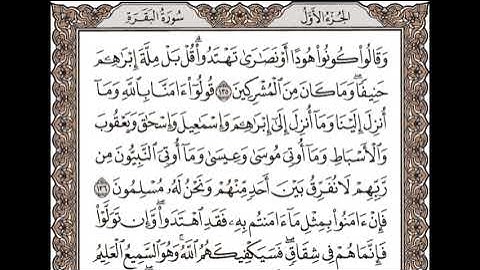 الجزء الأول
سورة البقرة
وَقَالُوا۟ كُونُوا۟ هُودًا أَوْ نَصَـٰرَىٰ تَهْتَدُوا۟ ۗ قُلْ بَلْ مِلَّةَ إِبْرَٰهِـۧمَ
حَنِيفًا ۖ وَمَا كَانَ مِنَ ٱلْمُشْرِكِينَ ١٣٥ قُولُوٓا۟ ءَامَنَّا بِٱللَّهِ وَمَآ
أُنزِلَ إِلَيْنَا وَمَآ أُنزِلَ إِلَىٰٓ إِبْرَٰهِـۧمَ وَإِسْمَـٰعِيلَ وَإِسْحَـٰقَ وَيَعْقُوبَ
وَٱلْأَسْبَاطِ وَمَآ أُوتِىَ مُوسَىٰ وَعِيسَىٰ وَمَآ أُوتِىَ ٱلنَّبِيُّونَ مِن
رَّبِّهِمْ لَا نُفَرِّقُ بَيْنَ أَحَدٍ مِّنْهُمْ وَنَحْنُ لَهُۥ مُسْلِمُونَ ١٣٦
فَإِنْ ءَامَنُوا۟ بِمِثْلِ مَآ ءَامَنتُم بِهِۦ فَقَدِ ٱهْتَدَوا۟ ۖ وَّإِن تَوَلَّوْا۟
فَإِنَّمَا هُمْ فِى شِقَاقٍ ۖ فَسَيَكْفِيكَهُمُ ٱللَّهُ ۚ وَهُوَ ٱلسَّمِيعُ ٱلْعَلِيمُ